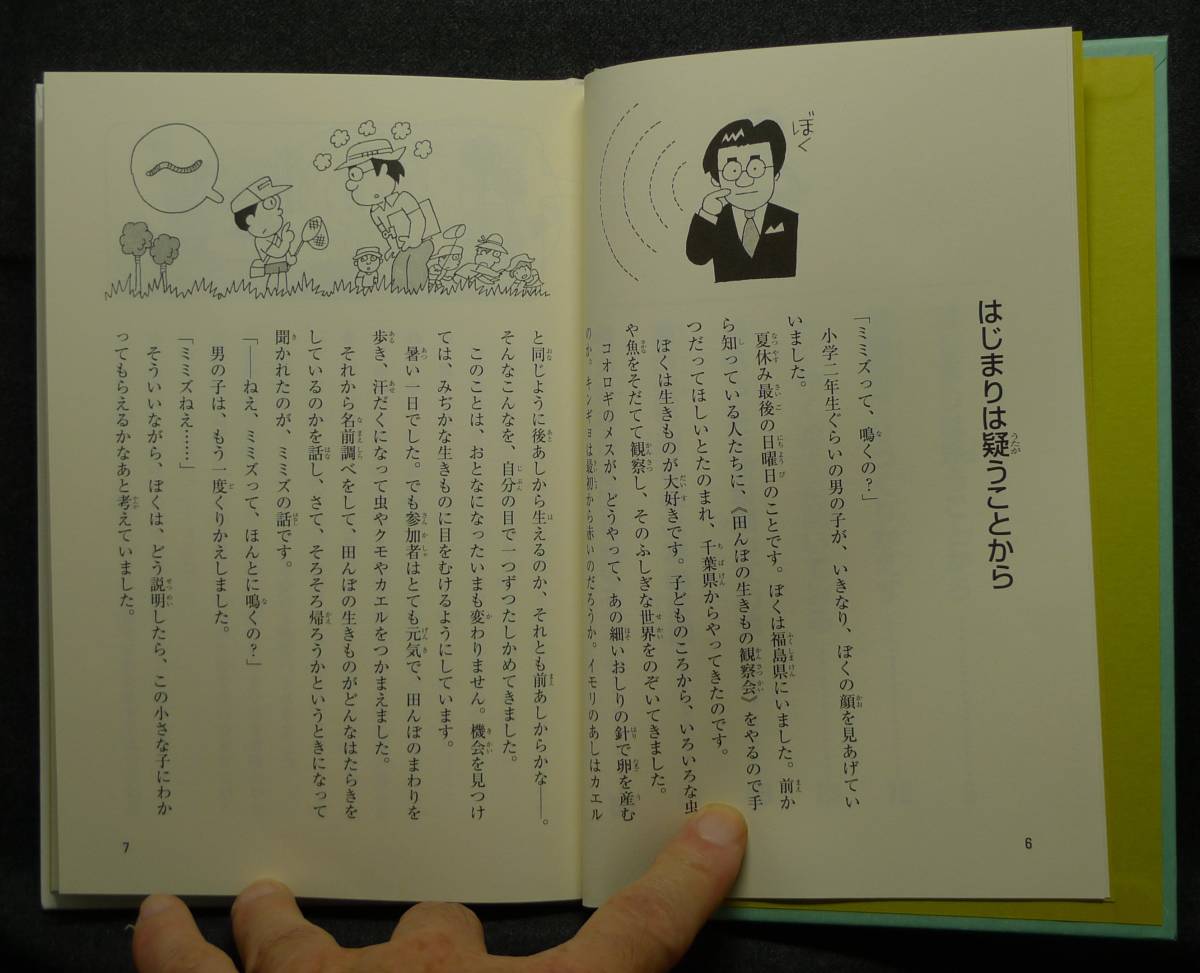 はじまりは疑うことから
「ミミズって、鳴くの？」
小学二年生ぐらいの男の子が、いきなり、ぼくの顔を見あげてい
いました。
夏休み最後の日曜日のことです。ぼくは福島県にいました。前か
ら知っている人たちに、《田んぼの生きもの観察会》をやるので手
つだってほしいとたのまれ、千葉県からやってきたのです。
ぼくは生きものが大好きです。子どものころから、いろいろな虫
や魚をそだてて観察し、そのふしぎな世界をのぞいてきました。
コオロギのメスが、どうやって、あの細いおしりの針で卵を産む
のか。キンギョは最初から赤いのだろうか。イモリのあしはカエル
ぼく
6
と同じように後あしから生えるのか、それとも前あしからかな――。
そんなこんなを、自分の目で一つずつたしかめてきました。
このことは、おとなになったいまも変わりません。機会を見つけ
ては、みぢかな生きものに目をむけるようにしています。
暑い一日でした。でも参加者はとても元気で、田んぼのまわりを
歩き、汗だくになって虫やクモやカエルをつかまえました。
それから名前調べをして、田んぼの生きものがどんなはたらきを
しているのかを話し、さて、そろそろ帰ろうかというときになって
聞かれたのが、ミミズの話です。
「――ねえ、ミミズって、ほんとに鳴くの？」
男の子は、もう一度くりかえしました。
「ミミズねえ……」
そういいながら、ぼくは、どう説明したら、この小さな子にわか
ってもらえるかなあと考えていました。
7